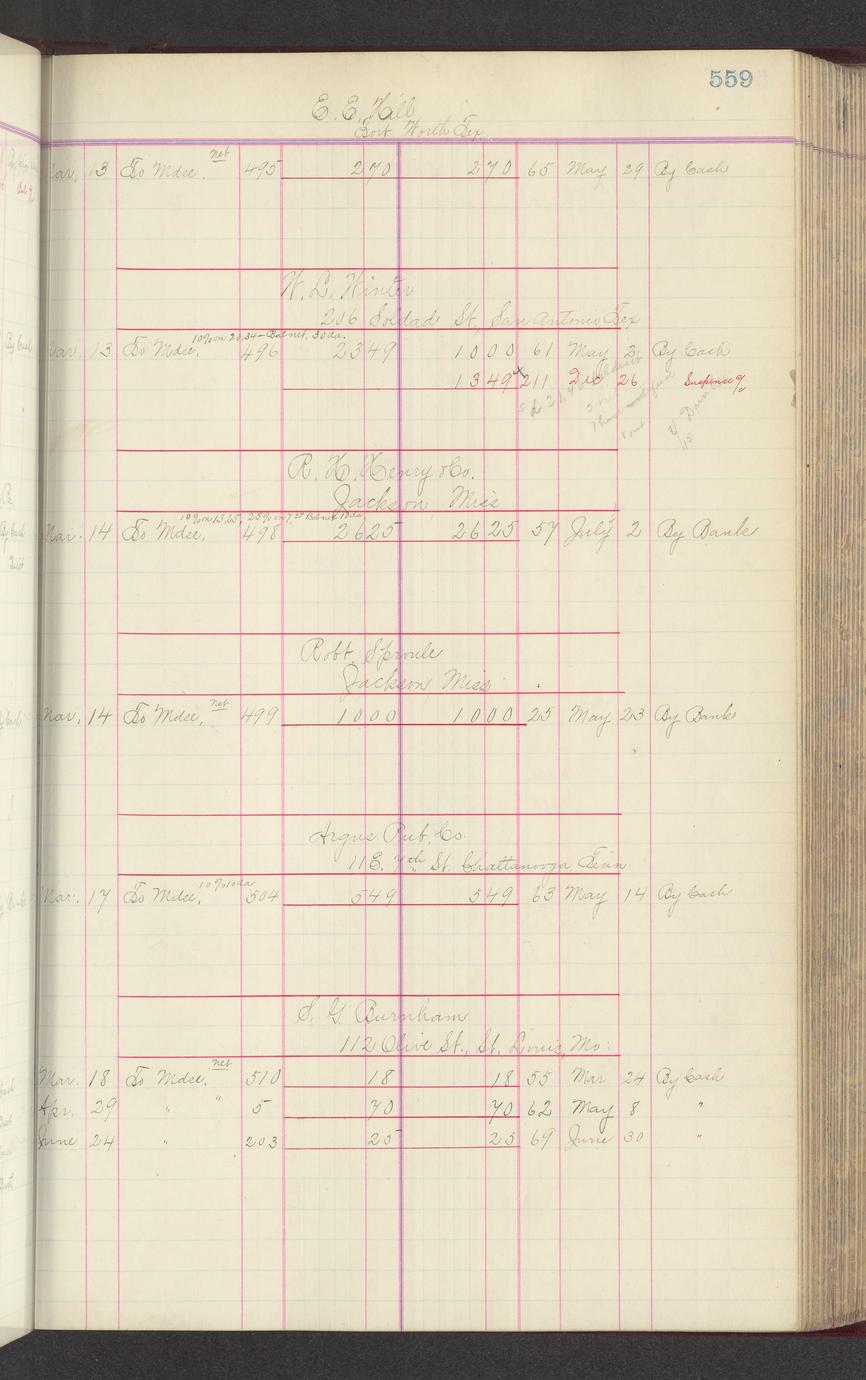 559
E. E. Hall
Fort Worth Tex
Mar. 13 To Mdse. net 495 270 270 65 May 29 By Cash
W. L. Winter
206 Soldad St, San Antonio Tex
10% on 20.34 - Bal net, 30 da.
Mar. 13 To Mdse. 496 2349 1000 61 May 3 By Cash
1349 211 Dec 26 Suspense %
R. H. Henry & Co.
Jackson Miss
10% on 13.25, 25% on 7.00 Bal net 10 da
Mar. 14 To Mdse. 498 2625 2625 57 July 2 By Bank
Robt. Sproule
Jackson, Miss
Mar. 14 To Mdse. net 499 1000 1000 25 May 23 By Bank
Argus Pub. Co.
11 E. 7th St. Chattanooga Tenn
10% 10 da
Mar. 17 To Mdse. 504 549 549 63 May 14 By Cash
S. G. Burnham
112 Olive St., St. Louis, Mo.
Mar. 18 To Mdse. net 510 18 18 55 Mar 24 By Cash
Apr. 29 " " 5 70 70 62 May 8 "
June 24 " 203 25 25 69 June 30 "